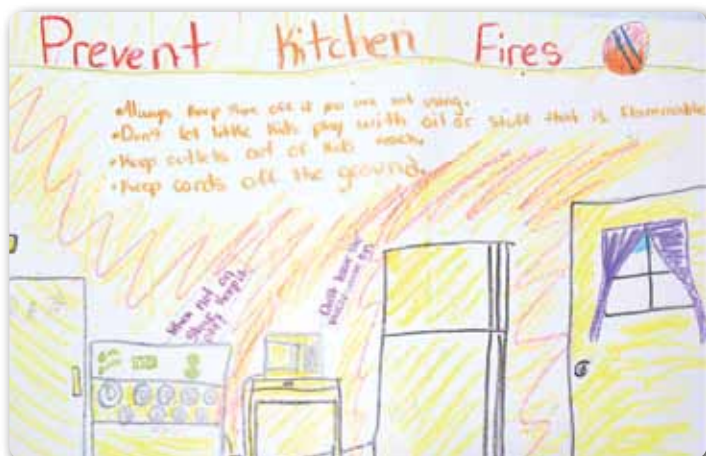 Prevent Kitchen Fires
•Always keep stove off if you are not using.
•Don't let little kids play with oil or stuff that is flammable
•Keep outlets out of kids reach.
•Keep cords off the ground.
When not on